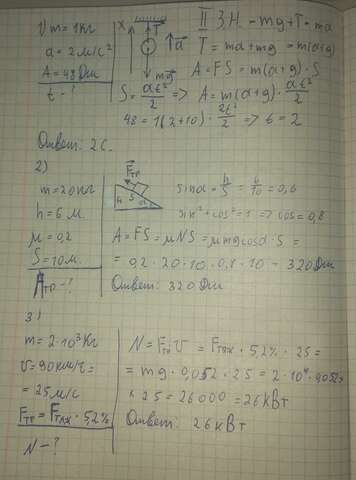 V m = 1кг
a = 2м/с²
A = 48Дж
t - ?
X T ↑a mg
II З.Н. - mg + T = ma
T = ma + mg = m(a+g)
A = FS = m(a+g)·S
S = at²/2 => A = m(a+g)·at²/2
48 = 1(2+10)·2t²/2 => t = 2
Ответ: 2 с.
2)
m = 20кг
h = 6 м.
μ = 0,2
S = 10м.
Aтр - ?
Fтр h S α
sinα = h/S = 6/10 = 0,6
sin² + cos² = 1 => cos = 0,8
A = FS = μNS = μmg cosα·S =
= 0,2·20·10·0,8·10 = 320Дж
Ответ: 320Дж
3)
m = 2·10³кг
v = 90км/ч =
= 25м/с
Fтр = Fтяж·5,2%
N - ?
N = Fтр v = Fтяж·5,2%·25 =
= mg·0,052·25 = 2·10⁴·0,052·
× 25 = 26000 = 26кВт
Ответ: 26кВт